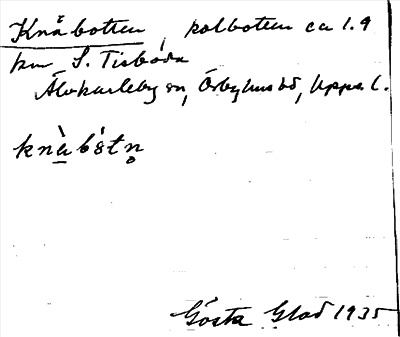 Knåbotten, kolbotten ca 1.9
km S. Tisboda
Älvkarleby sn, Örbyhus hd, Uppsa l.
knàbótn̥
Gösta Glad 1935